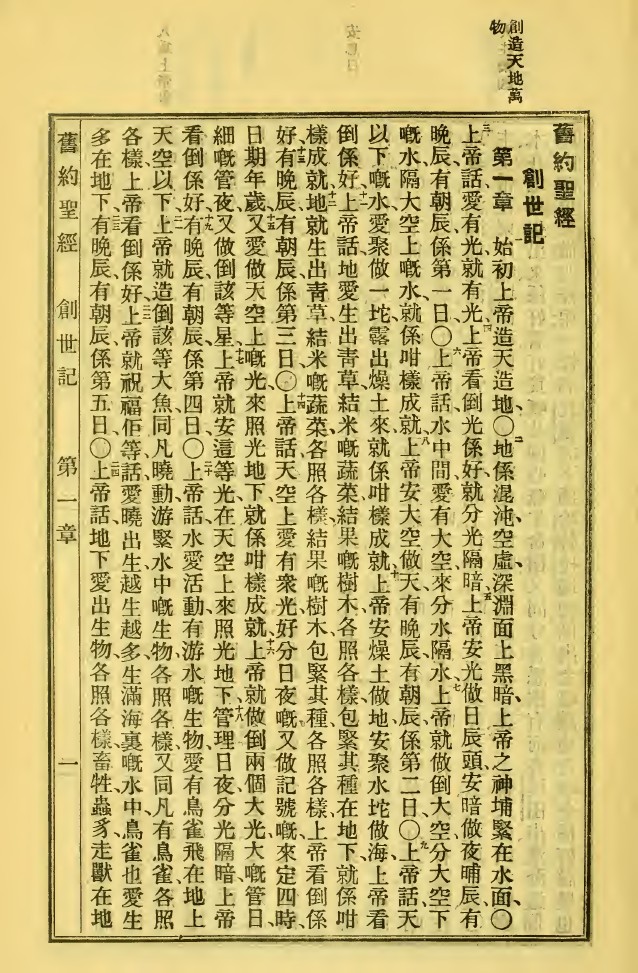 創造天地萬
物
舊約聖經
創世記
第一章 始初上帝造天造地、〇二地係混沌空虛、深淵面上黑暗、上帝之神埔緊在水面、〇
三上帝話、愛有光、就有光、四上帝看倒光係好、就分光隔暗、五上帝安光做日辰頭、安暗做夜晡辰、有
晚辰有朝辰、係第一日、〇六上帝話、水中間愛有大空、來分水隔水、七上帝就做倒大空、分大空下
嘅水、隔大空上嘅水、就係咁樣成就、八上帝安大空做天、有晚辰有朝辰、係第二日、〇九上帝話、天
以下嘅水、愛聚做一坨、露出燥土來、就係咁樣成就、十上帝安燥土做地、安聚水坨做海、上帝看
倒係好、十一上帝話、地愛生出青草、結米嘅蔬菜、結果嘅樹木、各照各樣、包緊其種在地下、就係咁
樣成就、十二地就生出青草、結米嘅蔬菜、各照各樣、結果嘅樹木、包緊其種、各照各樣、上帝看倒係
好、十三有晚辰有朝辰、係第三日、〇十四上帝話、天空上愛有衆光、好分日夜嘅、又做記號嘅、來定四時、
日期年歲、十五又愛做天空上嘅光、來照光地下、就係咁樣成就、十六上帝就做倒兩個大光、大嘅管日、
細嘅管夜、又做倒該等星、十七上帝就安這等光在天空上、來照光地下、十八管理日夜、分光隔暗、上帝
看倒係好、十九有晚辰有朝辰、係第四日、〇二十上帝話、水愛活動有游水嘅生物、愛有鳥雀飛在地上
天空以下、二一上帝就造倒該等大魚、同凡曉動游緊水中嘅生物、各照各樣、又同凡有鳥雀、各照
各樣、上帝看倒係好、二二上帝就祝福佢等話、愛曉出生越生越多、生滿海裏嘅水中、鳥雀也愛生
多在地下、二三有晚辰有朝辰、係第五日、〇二四上帝話、地下愛出生物、各照各樣、畜牲蟲豸、走獸在地
舊約聖經 創世記 第一章 一